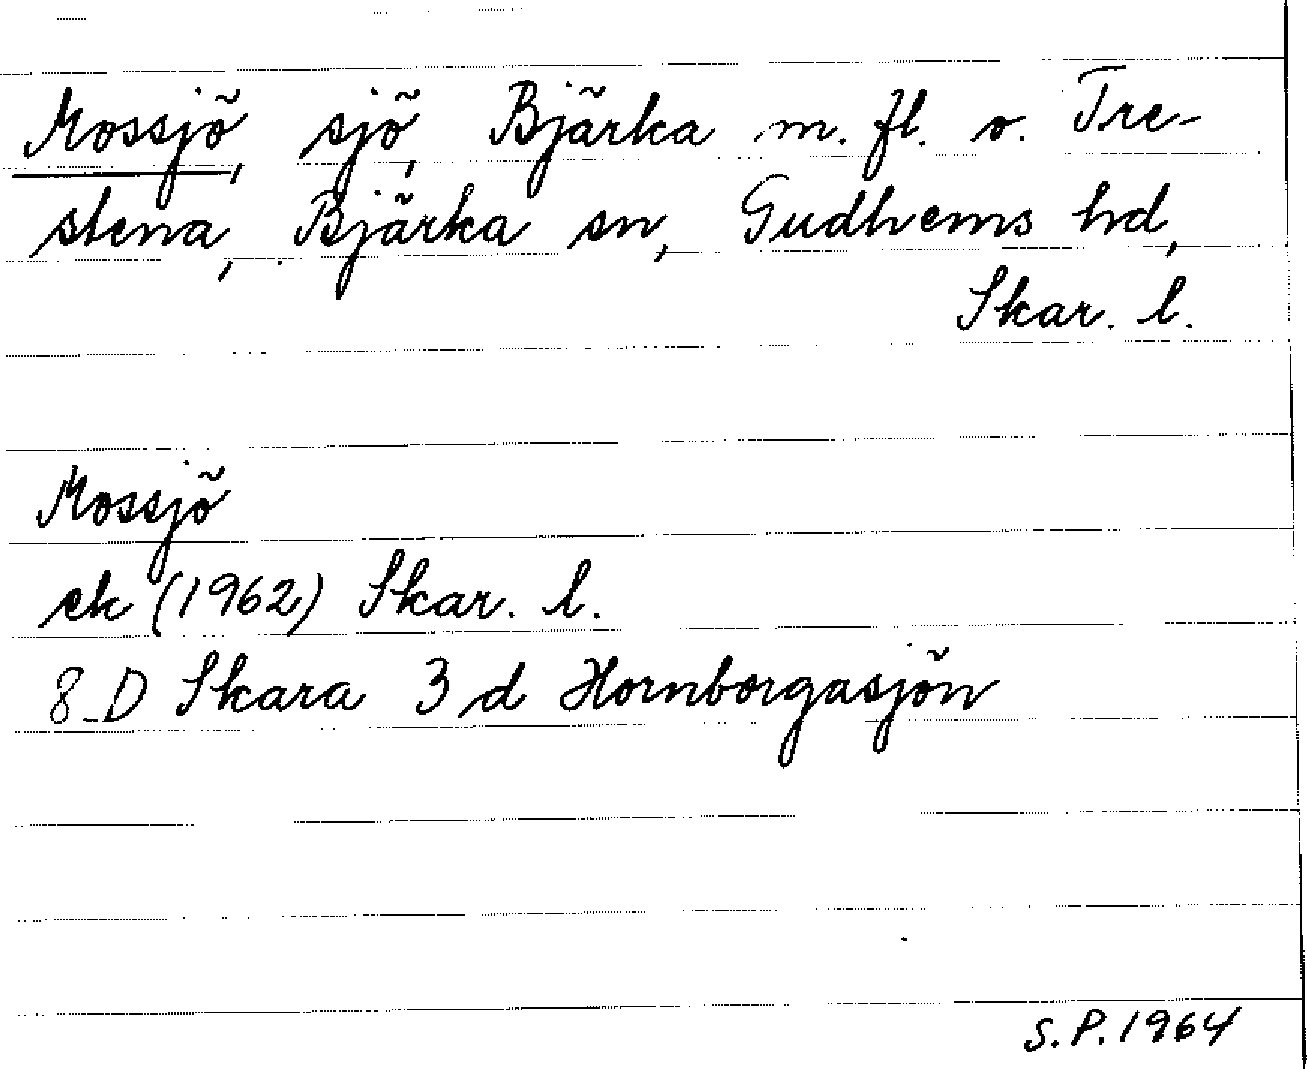 Mossjö, sjö, Bjärka m. fl. o. Tre-
stena, Bjärka sn, Gudhems hd,
Skar. l.
Mossjö
ek (1962) Skar. l.
8_D Skara 3 d Hornborgasjön
S.P. 1964